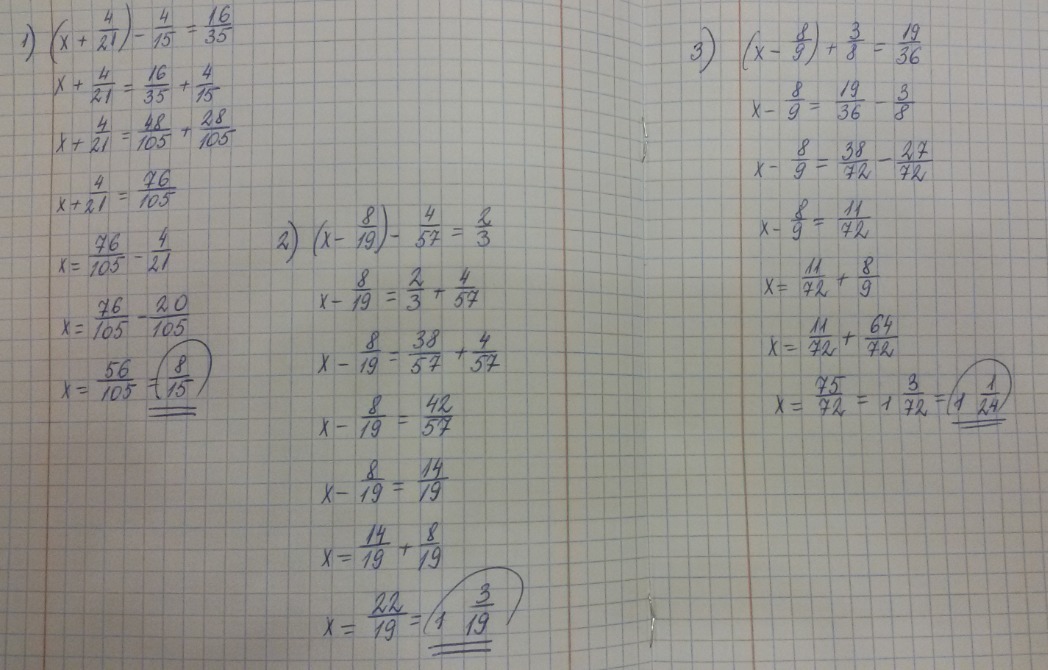 1) (x + 4/21) - 4/15 = 16/35
x + 4/21 = 16/35 + 4/15
x + 4/21 = 48/105 + 28/105
x + 4/21 = 76/105
x = 76/105 - 4/21
x = 76/105 - 20/105
x = 56/105 = 8/15
2) (x - 8/19) - 4/57 = 2/3
x - 8/19 = 2/3 + 4/57
x - 8/19 = 38/57 + 4/57
x - 8/19 = 42/57
x - 8/19 = 14/19
x = 14/19 + 8/19
x = 22/19 = 1 3/19
3) (x - 8/9) + 3/8 = 19/36
x - 8/9 = 19/36 - 3/8
x - 8/9 = 38/72 - 27/72
x - 8/9 = 11/72
x = 11/72 + 8/9
x = 11/72 + 64/72
x = 75/72 = 1 3/72 = 1 1/24